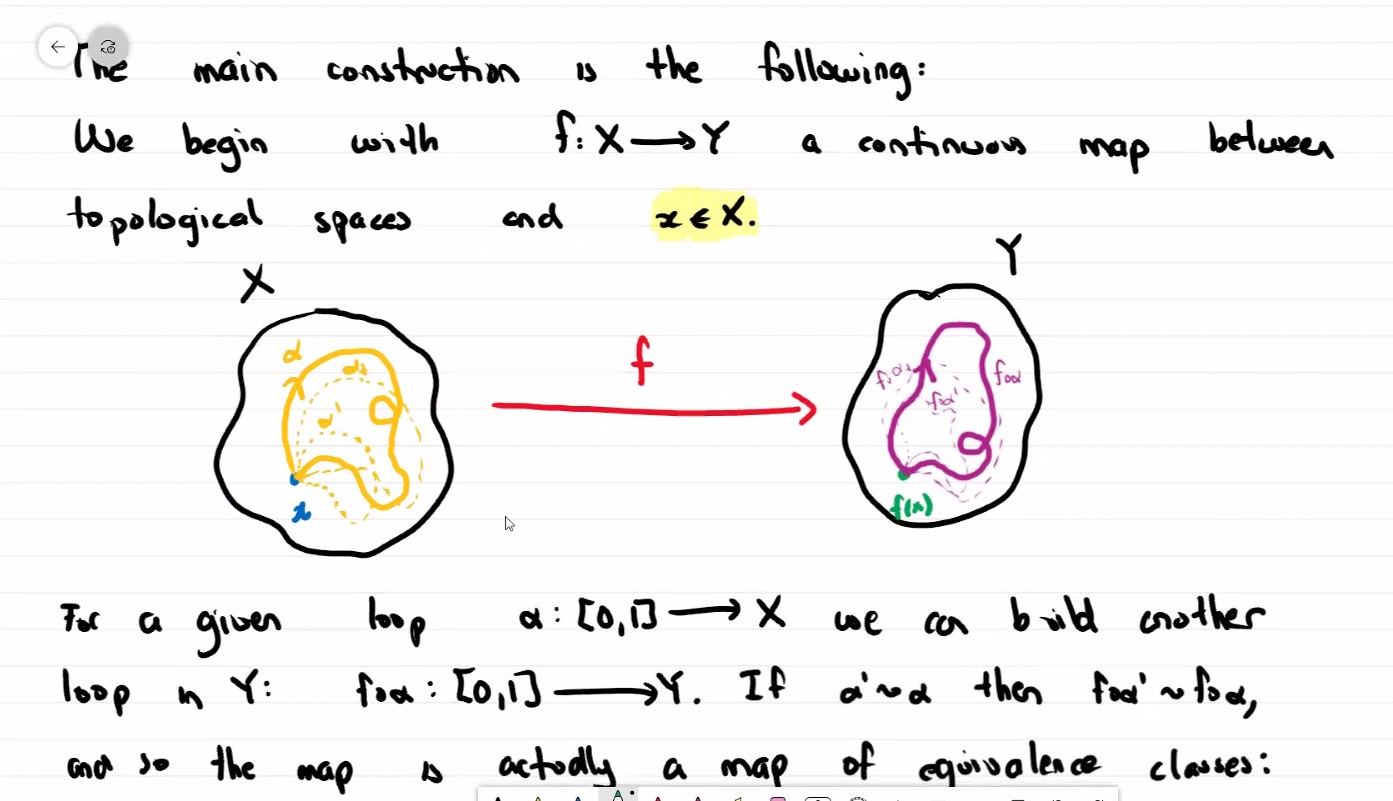 The main construction is the following:
We begin with f: X ⟶ Y a continuous map between
topological spaces and x ∈ X.
X
Y
f
α
αs
α'
x
f∘αs
f∘α
f∘α'
f(x)
For a given loop α : [0,1] ⟶ X we can build another
loop in Y: f∘α : [0,1] ⟶ Y. If α'~α then f∘α' ~ f∘α,
and so the map is actually a map of equivalence classes: